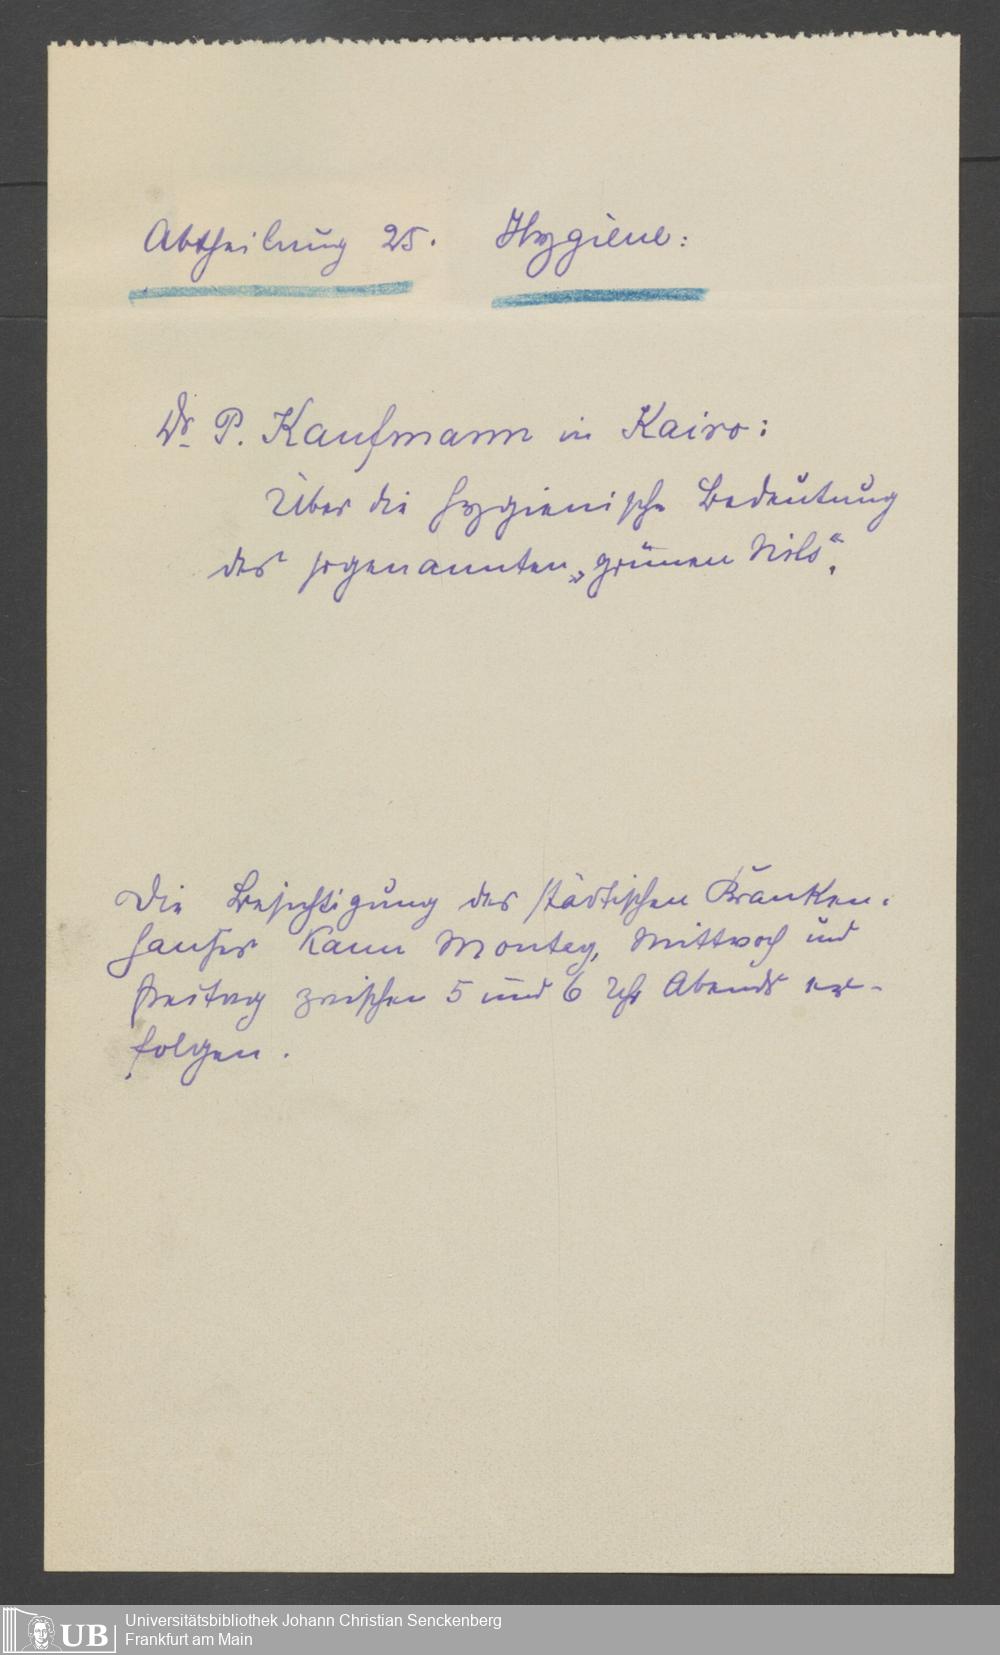 Abtheilung 25. Hygiene:
Dr. P. Kaufmann in Kairo:
Über die hygienische Bedeutung
des sogenannten „grünen Nils“.
Die Besichtigung des städtischen Kranken-
hauses kann Montag, Mittwoch und
Freitag zwischen 5 und 6 Uhr Abends er-
folgen.
UB
Universitätsbibliothek Johann Christian Senckenberg
Frankfurt am Main